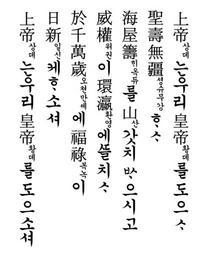 上帝샹뎨는우리皇帝황뎨를도으ᄉᆞ
聖壽無疆셩슈무강ᄒᆞᄉᆞ
海屋籌ᄒᆡ옥듀를山산갓치ᄡᆞ으시고
威權위권이環瀛환영에ᄯᅳᆯ치ᄉᆞ
於千萬歲오쳔만세에福祿복녹이
日新일신케ᄒᆞ소셔
上帝샹뎨는우리皇帝황뎨를도으소셔